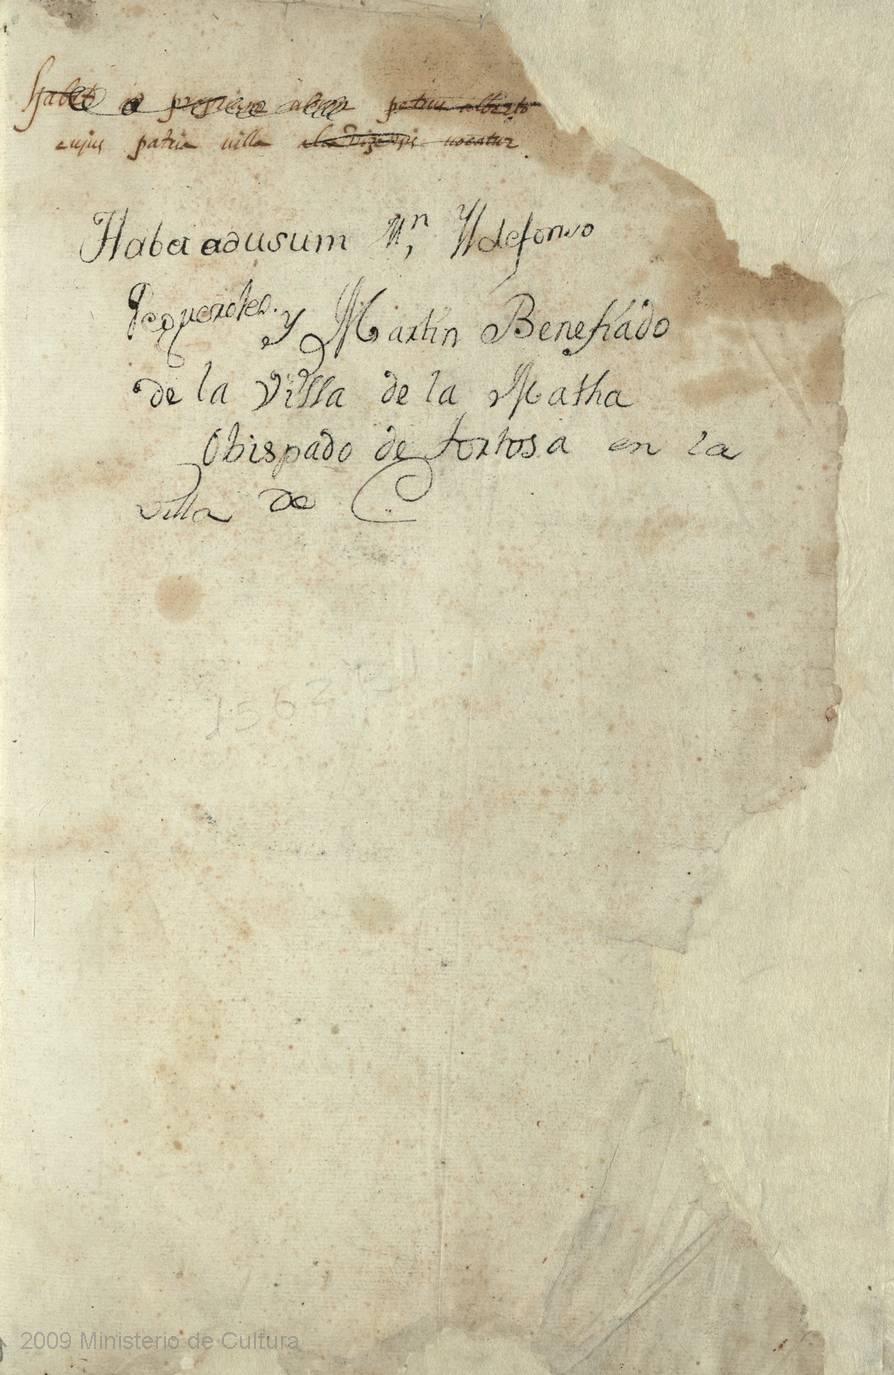 cujus patria villa nocatur
Haba adusum Mn, Yldefonso
Pequeroles. y Martin Benefiado
de la Villa de la Matha
Obispado de tortosa en la
villa de C
1562
2009 Ministerio de Cultura